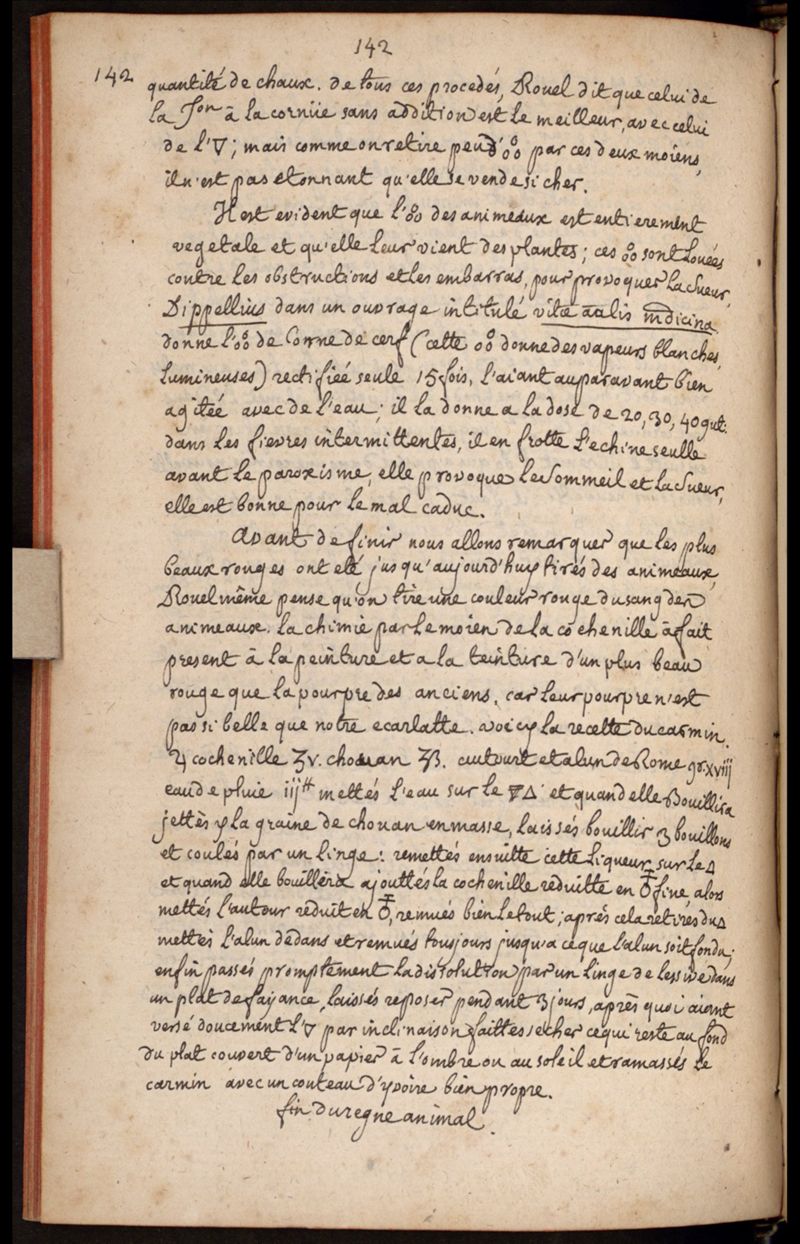 142
142
quantité de chaux. de tous ces procedés, Rouel dit que celui de
la Jon à la cornüe sans addition est le meilleur, avec celui
de l'🜄; mais comme on retire peu d'🝆 par ces deux moiens,
il n'est pas etonnant qu'elle se vende si cher.
Il est evident que l'🝆 des animeaux est entierement
vegetale et qu'elle leur vient des plantes; ces 🝆 sont louées
contre les obstructions et les embarras, pour provoquer la sueur,
Dippellius dans un ouvrage intitulé vitæ aalis mdicina
donne l'🝆 de Corne de cerf (cette 🝆 donne des vapeurs blanches
lumineuses) rectifiéé seule 15 fois, l'aiant auparavant bien
agitéé avec de l'eau; il la donne a la dose de 20, 30, 40 gut.
dans les fievres intermittentes, il en frotte l'echine seulle
avant le paroxisme, elle provoque le sommeil et la sueur,
elle est bonne pour le mal caduc.
Avant de finir nous allons remarquer que les plus
beaux rouges ont eté jusqu'aujourd'huy tirés des animeaux,
Rouel même pense qu'on tire une couleur rouge du sang des
animeaux. la chimie par le moien de la cochenille à fait
present à la peinture et a la teinture d'un plus beau
rouge que la pourpre des anciens, car leur pourpre n'est
pas si belle que notre ecarlatte. voicy la recette du carmin.
♃ cochenille ʒv. chouan ʒß. autour et alun de Rome gr. xviij
eau de pluie iij ℔ mettés l'eau sur le 🜄🜂 et quand elle Bouillira
jettés y la graine de chouan en masse, laissés bouillir 3 bouillons
et coulés par un linge: remettés ensuitte cette liqueur sur le 🜂
et quand elle bouillira ajouttés la cochenille reduitte en ♁ fine alors
mettés l'autour reduit en ♁, remués bien le tout; aprés cela retirés du 🜂
mettés l'alun dedans et remués tousjours jusqu'a ce que l'alun soit fondu;
enfin passés promptement la dissolution par un linge de lessive dans
un plat de fayance, laissés reposer pendant 3 jours, aprés quoi aiant
versé doucement l'🜄 par inclinaison faittes secher ce qui reste au fond
du plat couvert d'un papier à l'ombre ou au soleil et ramassés le
carmin avec un couteau d'yvoire bien propre.
fin du regne animal.